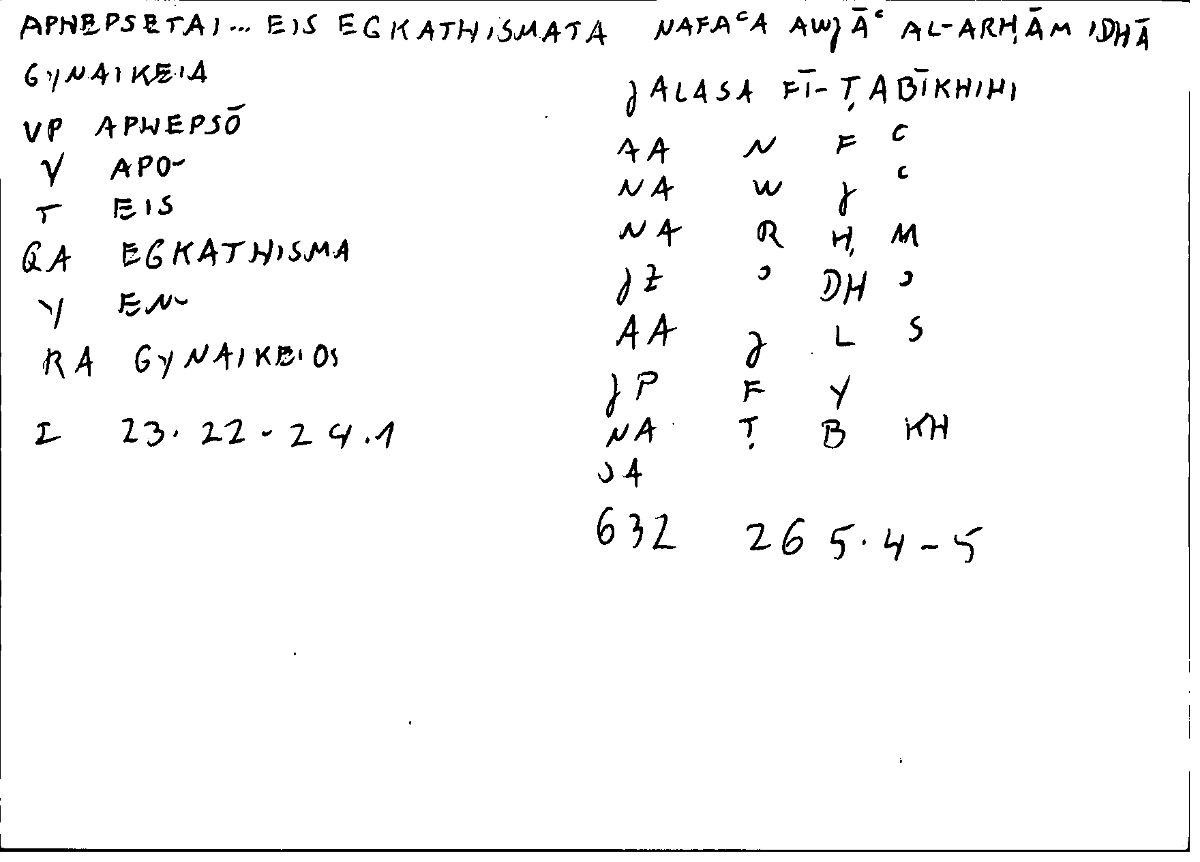 APHEPSETAI... EIS EGKATHISMATA
GYNAIKEIA
VP APHEPSŌ
V APO-
T EIS
QA EGKATHISMA
Y EN-
RA GYNAIKEIOS
I 23.22-24.1
NAFAᶜA AWJĀᶜ AL-ARḤĀM IDHĀ
JALASA FĪ-ṬABĪKHIHI
AA N F ᶜ
NA W J ᶜ
NA R Ḥ M
JZ ʾ DH ʾ
AA J L S
JP F Y
NA Ṭ B KH
ʾA
632 265.4-5